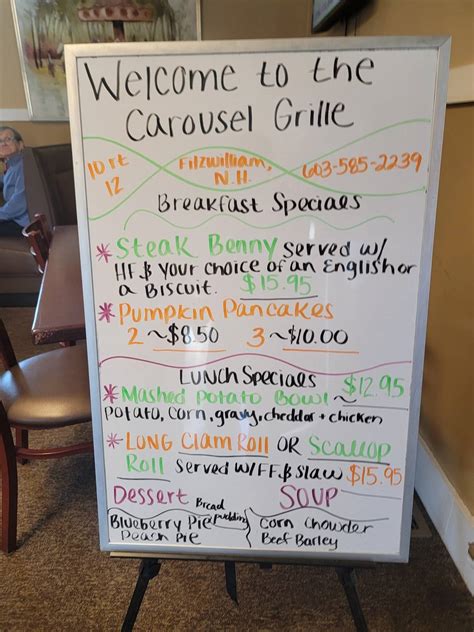 Welcome to the
Carousel Grille
10 rt
12
Fitzwilliam,
N.H.
603-585-2239
Breakfast Specials
*Steak Benny Served w/
HF & Your Choice of an English or
a Biscuit. $15.95
*Pumpkin Pancakes
2 ~$8.50 3 ~$10.00
Lunch Specials
*Mashed Potato Bowl ~ $12.95
Potato, corn, gravy, cheddar + chicken
*Long Clam Roll OR Scallop
Roll Served w/FF & Slaw $15.95
Dessert
Bread
pudding
Blueberry Pie
Peach Pie
SOUP
Corn Chowder
Beef Barley